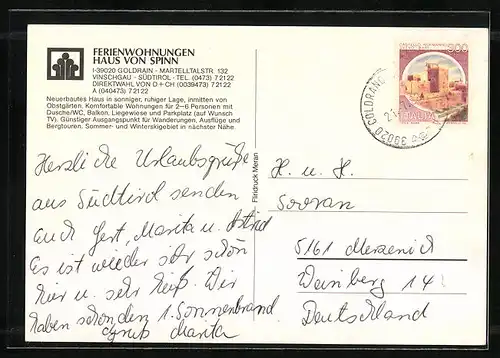 FERIENWOHNUNGEN
HAUS VON SPINN
I-39020 GOLDRAIN - MARTELLTALSTR. 132
VINSCHGAU - SÜDTIROL - TEL. (0473) 72122
DIREKTWAHL VON D + CH (0039473) 72122
A (040473) 72122
Neuerbautes Haus in sonniger, ruhiger Lage, inmitten von
Obstgärten. Komfortable Wohnungen für 2–6 Personen mit
Dusche/WC, Balkon, Liegewiese und Parkplatz (auf Wunsch
TV). Günstiger Ausgangspunkt für Wanderungen, Ausflüge und
Bergtouren. Sommer- und Winterskigebiet in nächster Nähe.
Herzliche Urlaubsgrüße
aus Südtirol senden
euch Gert, Marita u. Astrid
Es ist wieder sehr schön
hier u. sehr heiß. Wir
haben schon den 1. Sonnenbrand
Gruß Marita
Fliridruck Meran
300
ITALIA
39020 COLDRANO
H. u. H.
5161 Merzenich
Weinberg 14
Deutschland